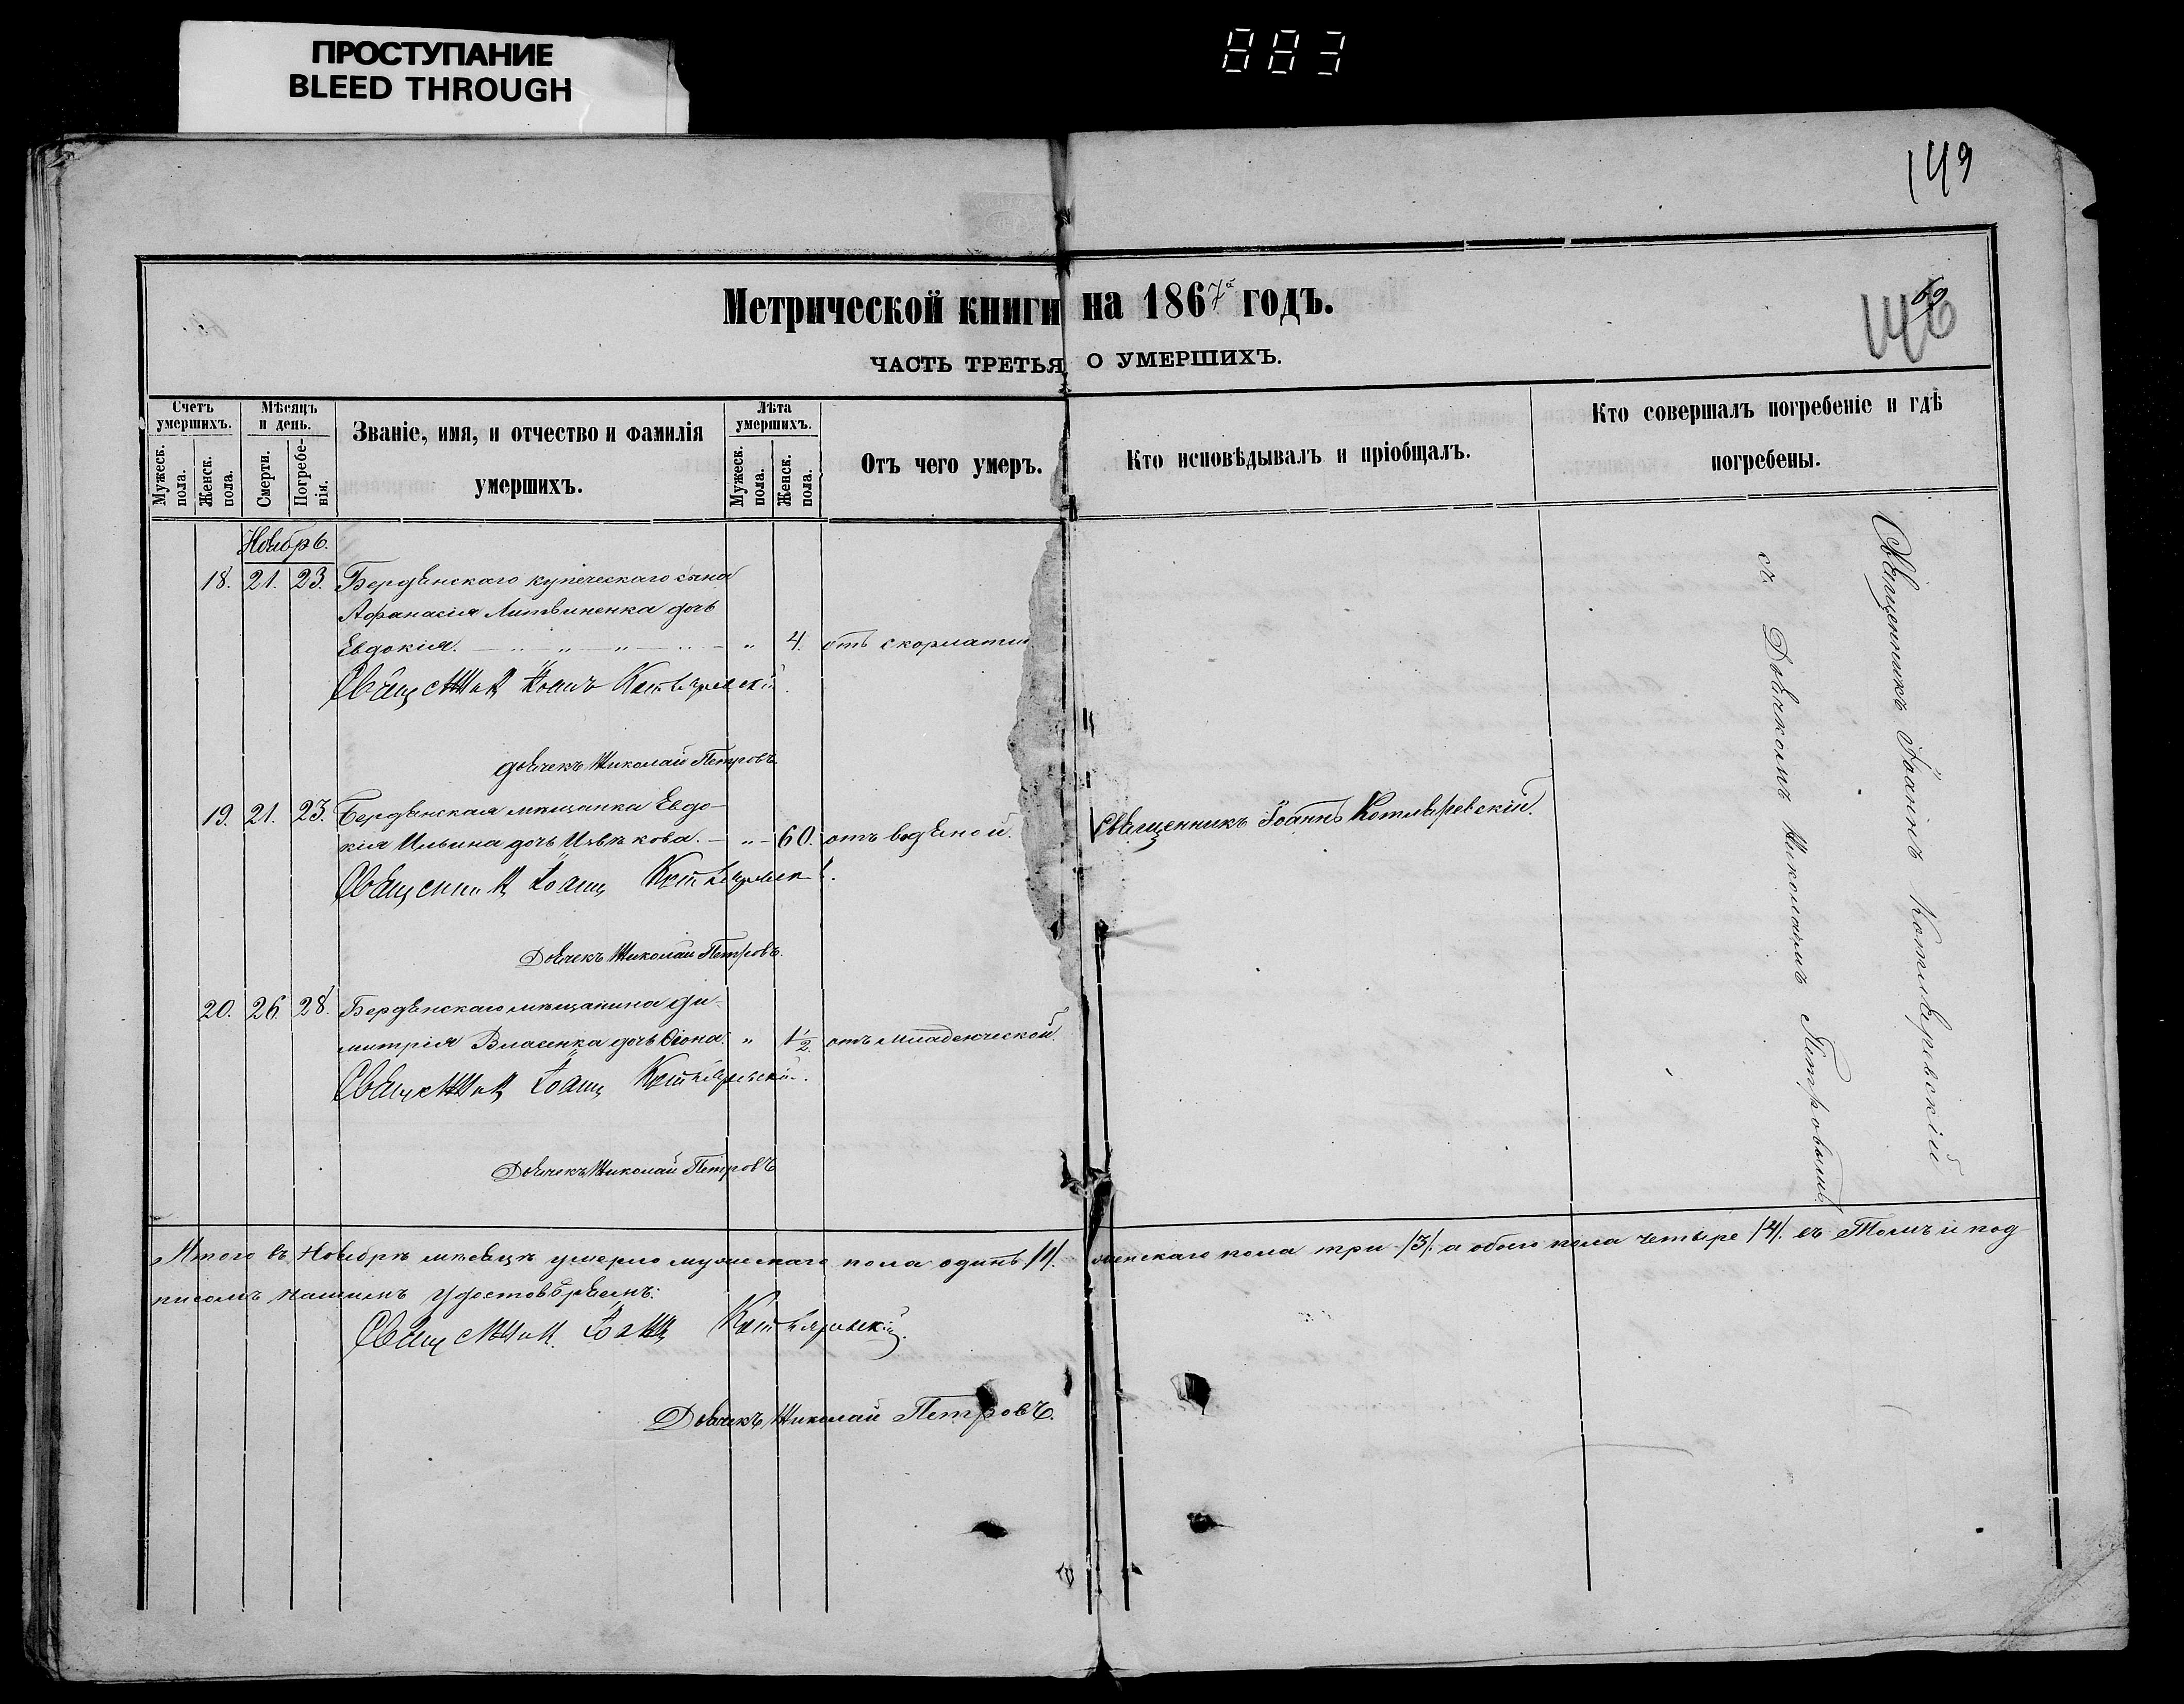 ПРОСТУПАНИЕ
BLEED THROUGH
883
149
69
146
Метрической книги на 1867й годъ.
ЧАСТЬ ТРЕТЬЯ О УМЕРШИХЪ.
Счетъ умершихъ.
Мужеск. пола.
Женск. пола.
Мѣсяцъ и день.
Смерти.
Погребенія.
Званіе, имя, и отчество и фамилія
умершихъ.
Лѣта умершихъ.
Мужеск. пола.
Женск. пола.
Отъ чего умеръ.
Кто исповѣдывалъ и пріобщалъ.
Кто совершалъ погребеніе и гдѣ
погребены.
Ноябрь.
18. 21. 23. Бердянскаго купеческаго сына
Афанасія Литвиненка дочь
Евдокія. " 4. отъ скорлатин
Священник Іоанъ Котляревскій.
Дьячекъ Николай Петровъ
19. 21. 23. Бердянская мѣщанка Евдо-
кія Ильина дочь кова. " 60. отъ водяной. Священникъ Іоаннъ Котляревскій.
Священник Іоанн Котляревск
Дьячекъ Николай Петровъ.
20. 26 28. Бердянскаго мѣщанина Ди-
митрія Власенка дочь " 1/2. отъ младенческой.
Священник Іоанн Котляревскій.
Дьячекъ Николай Петровъ
Священникъ Іоаннъ Котляревскій
съ Дьячкомъ Николаемъ Петровымъ
Итого въ Ноябрѣ мѣсяцѣ умерло мужескаго пола одинъ /1/. женскаго пола три /3/. а обоего пола четыре /4/. въ Томъ и под
писомъ нашимъ удостовѣряемъ:
Священник Іоанн Котляревскій.
Дьячекъ Николай Петровъ.